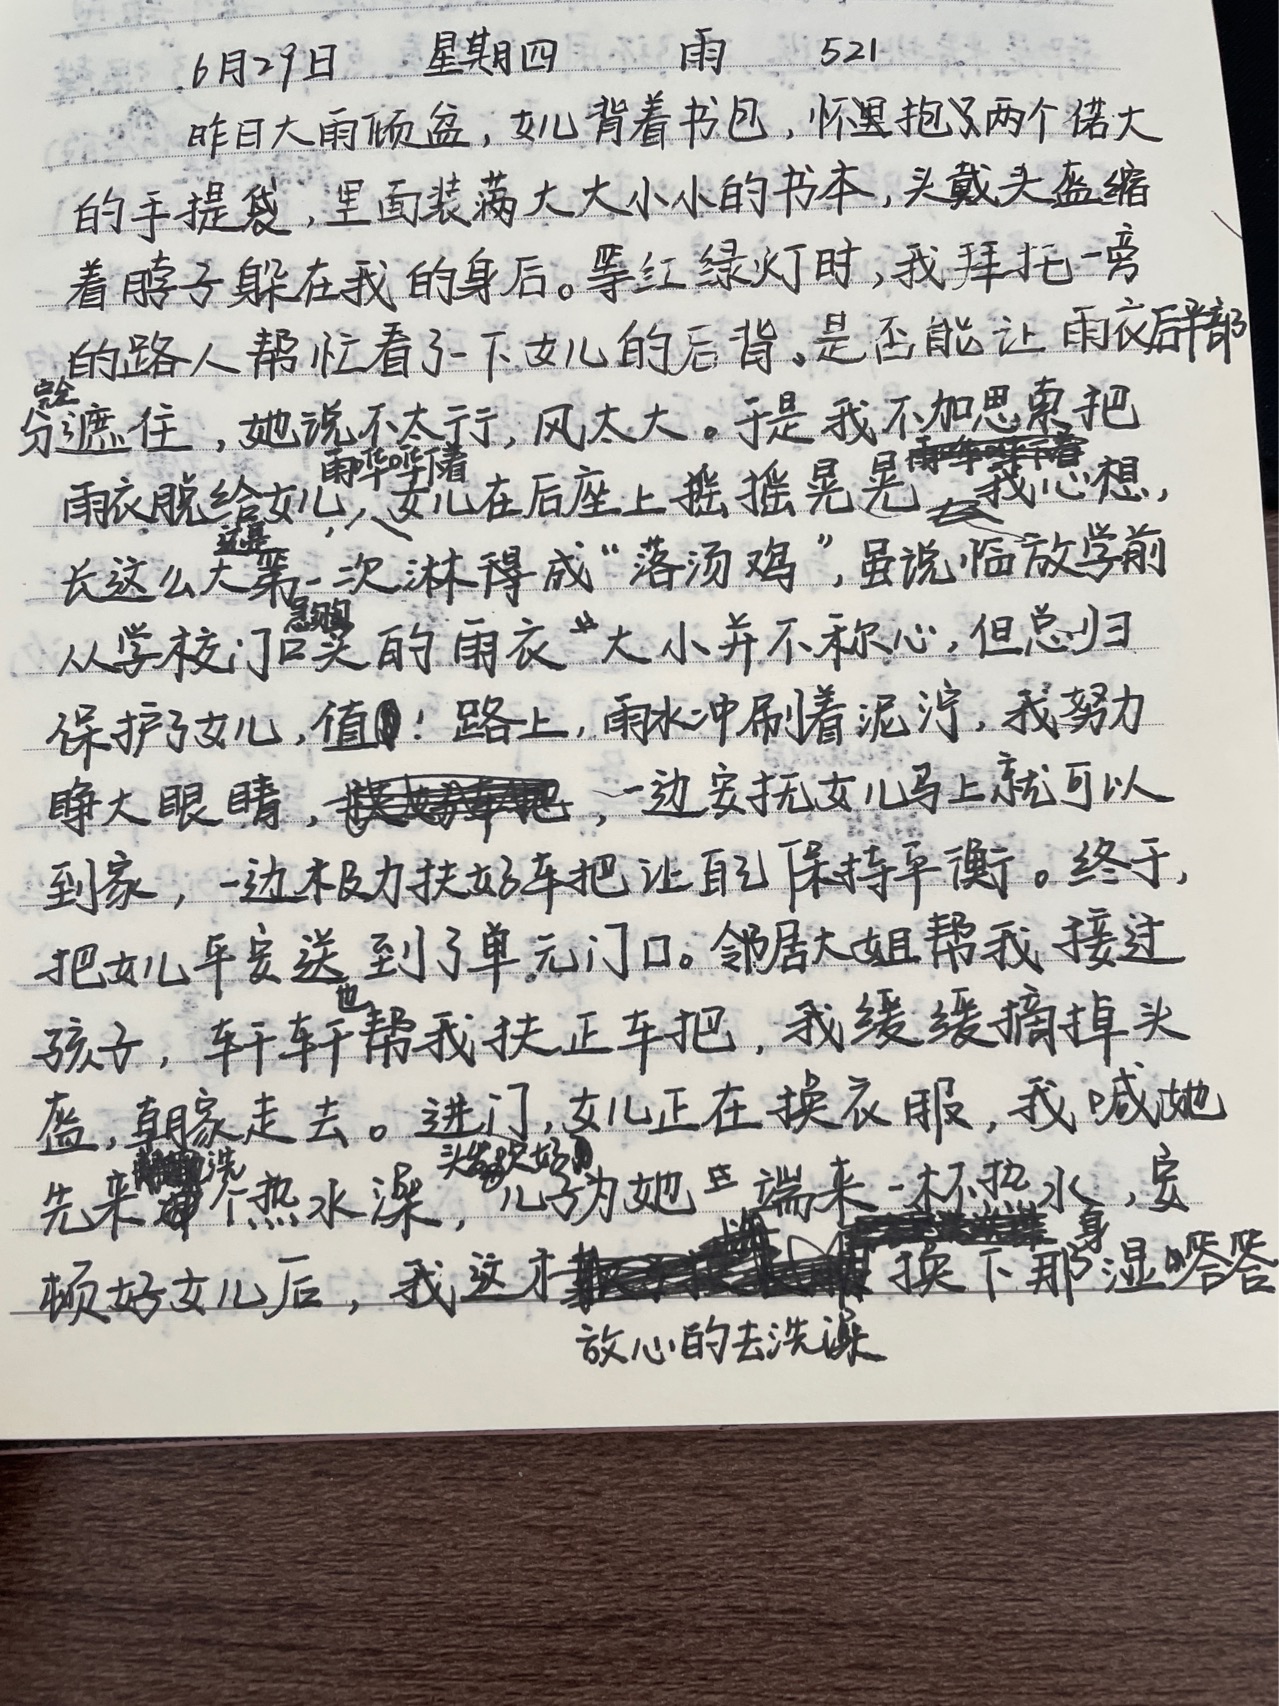 6月29日 星期四 雨 521
昨日大雨倾盆，女儿背着书包，怀里抱了两个偌大
的手提袋，里面装满大大小小的书本，头戴头盔缩
着脖子躲在我的身后。等红绿灯时，我拜托一旁
的路人帮忙看了一下女儿的后背。是否能让雨衣后半部
完全
分遮住，她说不太行，风太大。于是我不加思索把
雨哗哗下着
雨衣脱给女儿，女儿在后座上摇摇晃晃 我心想，
这是
长这么大第一次淋得成“落汤鸡”，虽说临放学前
从学校门口买的雨衣 大小并不称心，但总归
保护了女儿，值！路上，雨水冲刷着泥泞，我努力
睁大眼睛，，一边安抚女儿马上就可以
到家，一边极力扶好车把让自己保持平衡。终于，
把女儿平安送到了单元门口。邻居大姐帮我接过
也
孩子，轩轩帮我扶正车把，我缓缓摘掉头
盔，朝家走去。进门，女儿正在换衣服，我喊她
洗
先来个热水澡，儿子为她 端来一杯热水，安
身
顿好女儿后，我这才 换下那湿嗒嗒
放心的去洗澡